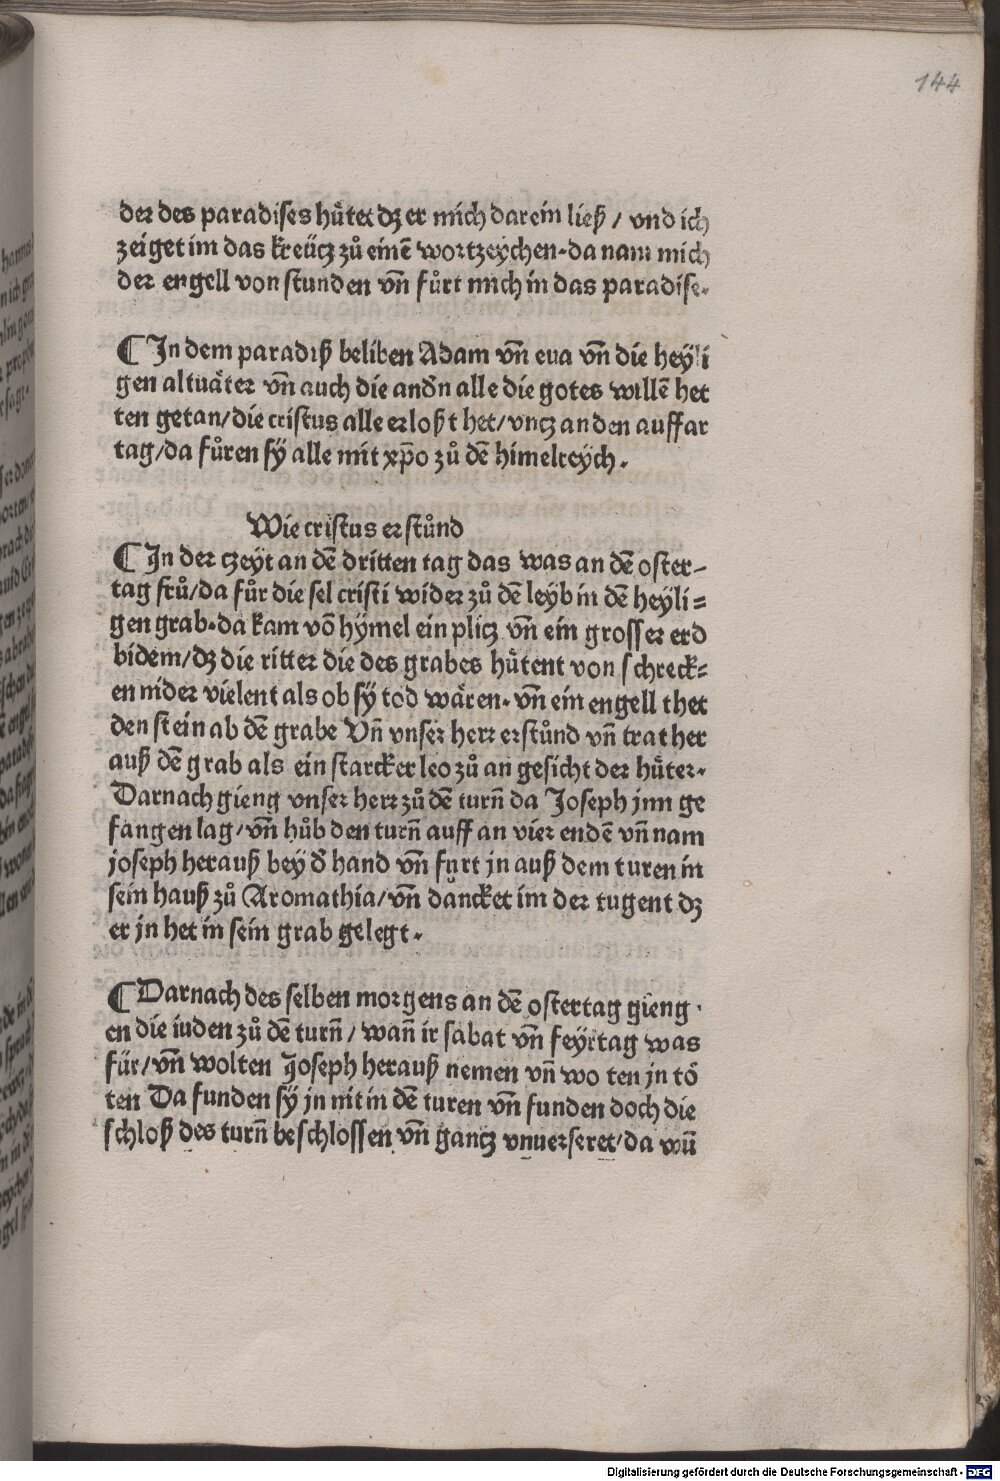 144
der des paradises hütet dz er mich darein ließ / vnd ich
zeiget im das kreücz zů einē wortzeychen·da nam mich
der engell von stunden vn̄ fůrt mich in das paradise·
¶ In dem paradiß beliben Adam vn̄ eua vn̄ die heyli
gen altuäter vn̄ auch die andn̄ alle die gotes willē het
ten getan/die cristus alle erloßt het/vncz an den auffar
tag/da fůren sÿ alle mit xp̄o zů dē himelreych·
Wie cristus erstůnd
¶ In der czeyt an dē dritten tag das was an dē oster-
tag frů/da fůr die sel cristi wider zů dē leyb in dē heyli=
gen grab·da kam vō hymel ein plicz vn̄ ein grosser erd
bidem/dz die ritter die des grabes hütent von schreck=
en nider vielent als ob sÿ tod wären· vn̄ ein engell thet
den stein ab dē grabe Vn̄ vnser herr erstůnd vn̄ trat her
auß dē grab als ein starcker leo zů an gesicht der hüter·
Darnach gieng vnser herr zů dē turn̄ da Joseph jnn ge
fangen lag/vn̄ hůb den turn̄ auff an vier endē vn̄ nam
joseph herauß bey d̄ hand vn̄ furt jn auß dem turen in
sein hauß zů Aromathia/vn̄ dancket im der tugent dz
er jn het in sein grab gelegt·
¶ Darnach des selben morgens an dē ostertag gieng·
en die iuden zů dē turn̄ / wan̄ ir sabat vn̄ feyrtag was
für/vn̄ wolten Joseph herauß nemen vn̄ wo ten jn tö
ten Da funden sÿ jn nit in dē turen vn̄ funden doch die
schloß des turn̄ beschlossen vn̄ gancz vnuerseret/da wū
Digitalisierung gefördert durch die Deutsche Forschungsgemeinschaft - DFG